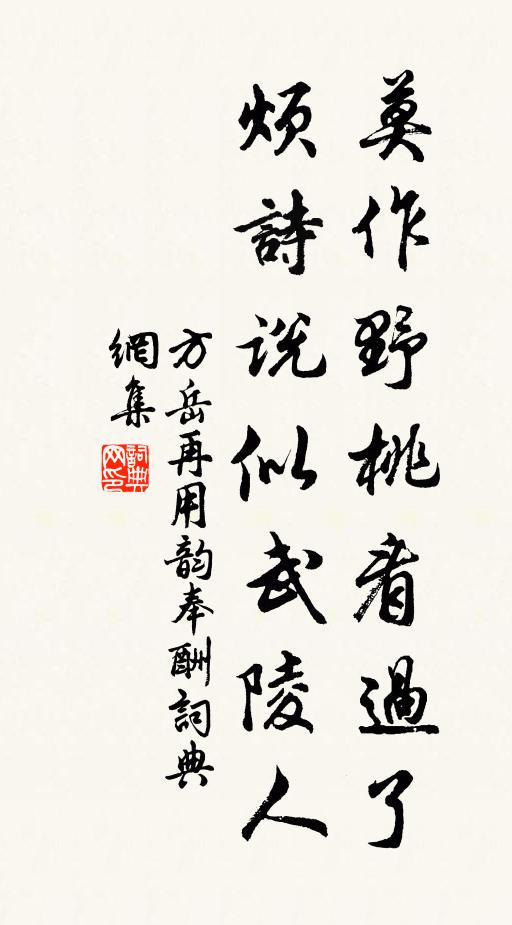 莫作野桃看過了
煩詩説似武陵人
方岳再用韵奉酬詞典
網集
詞典
网印